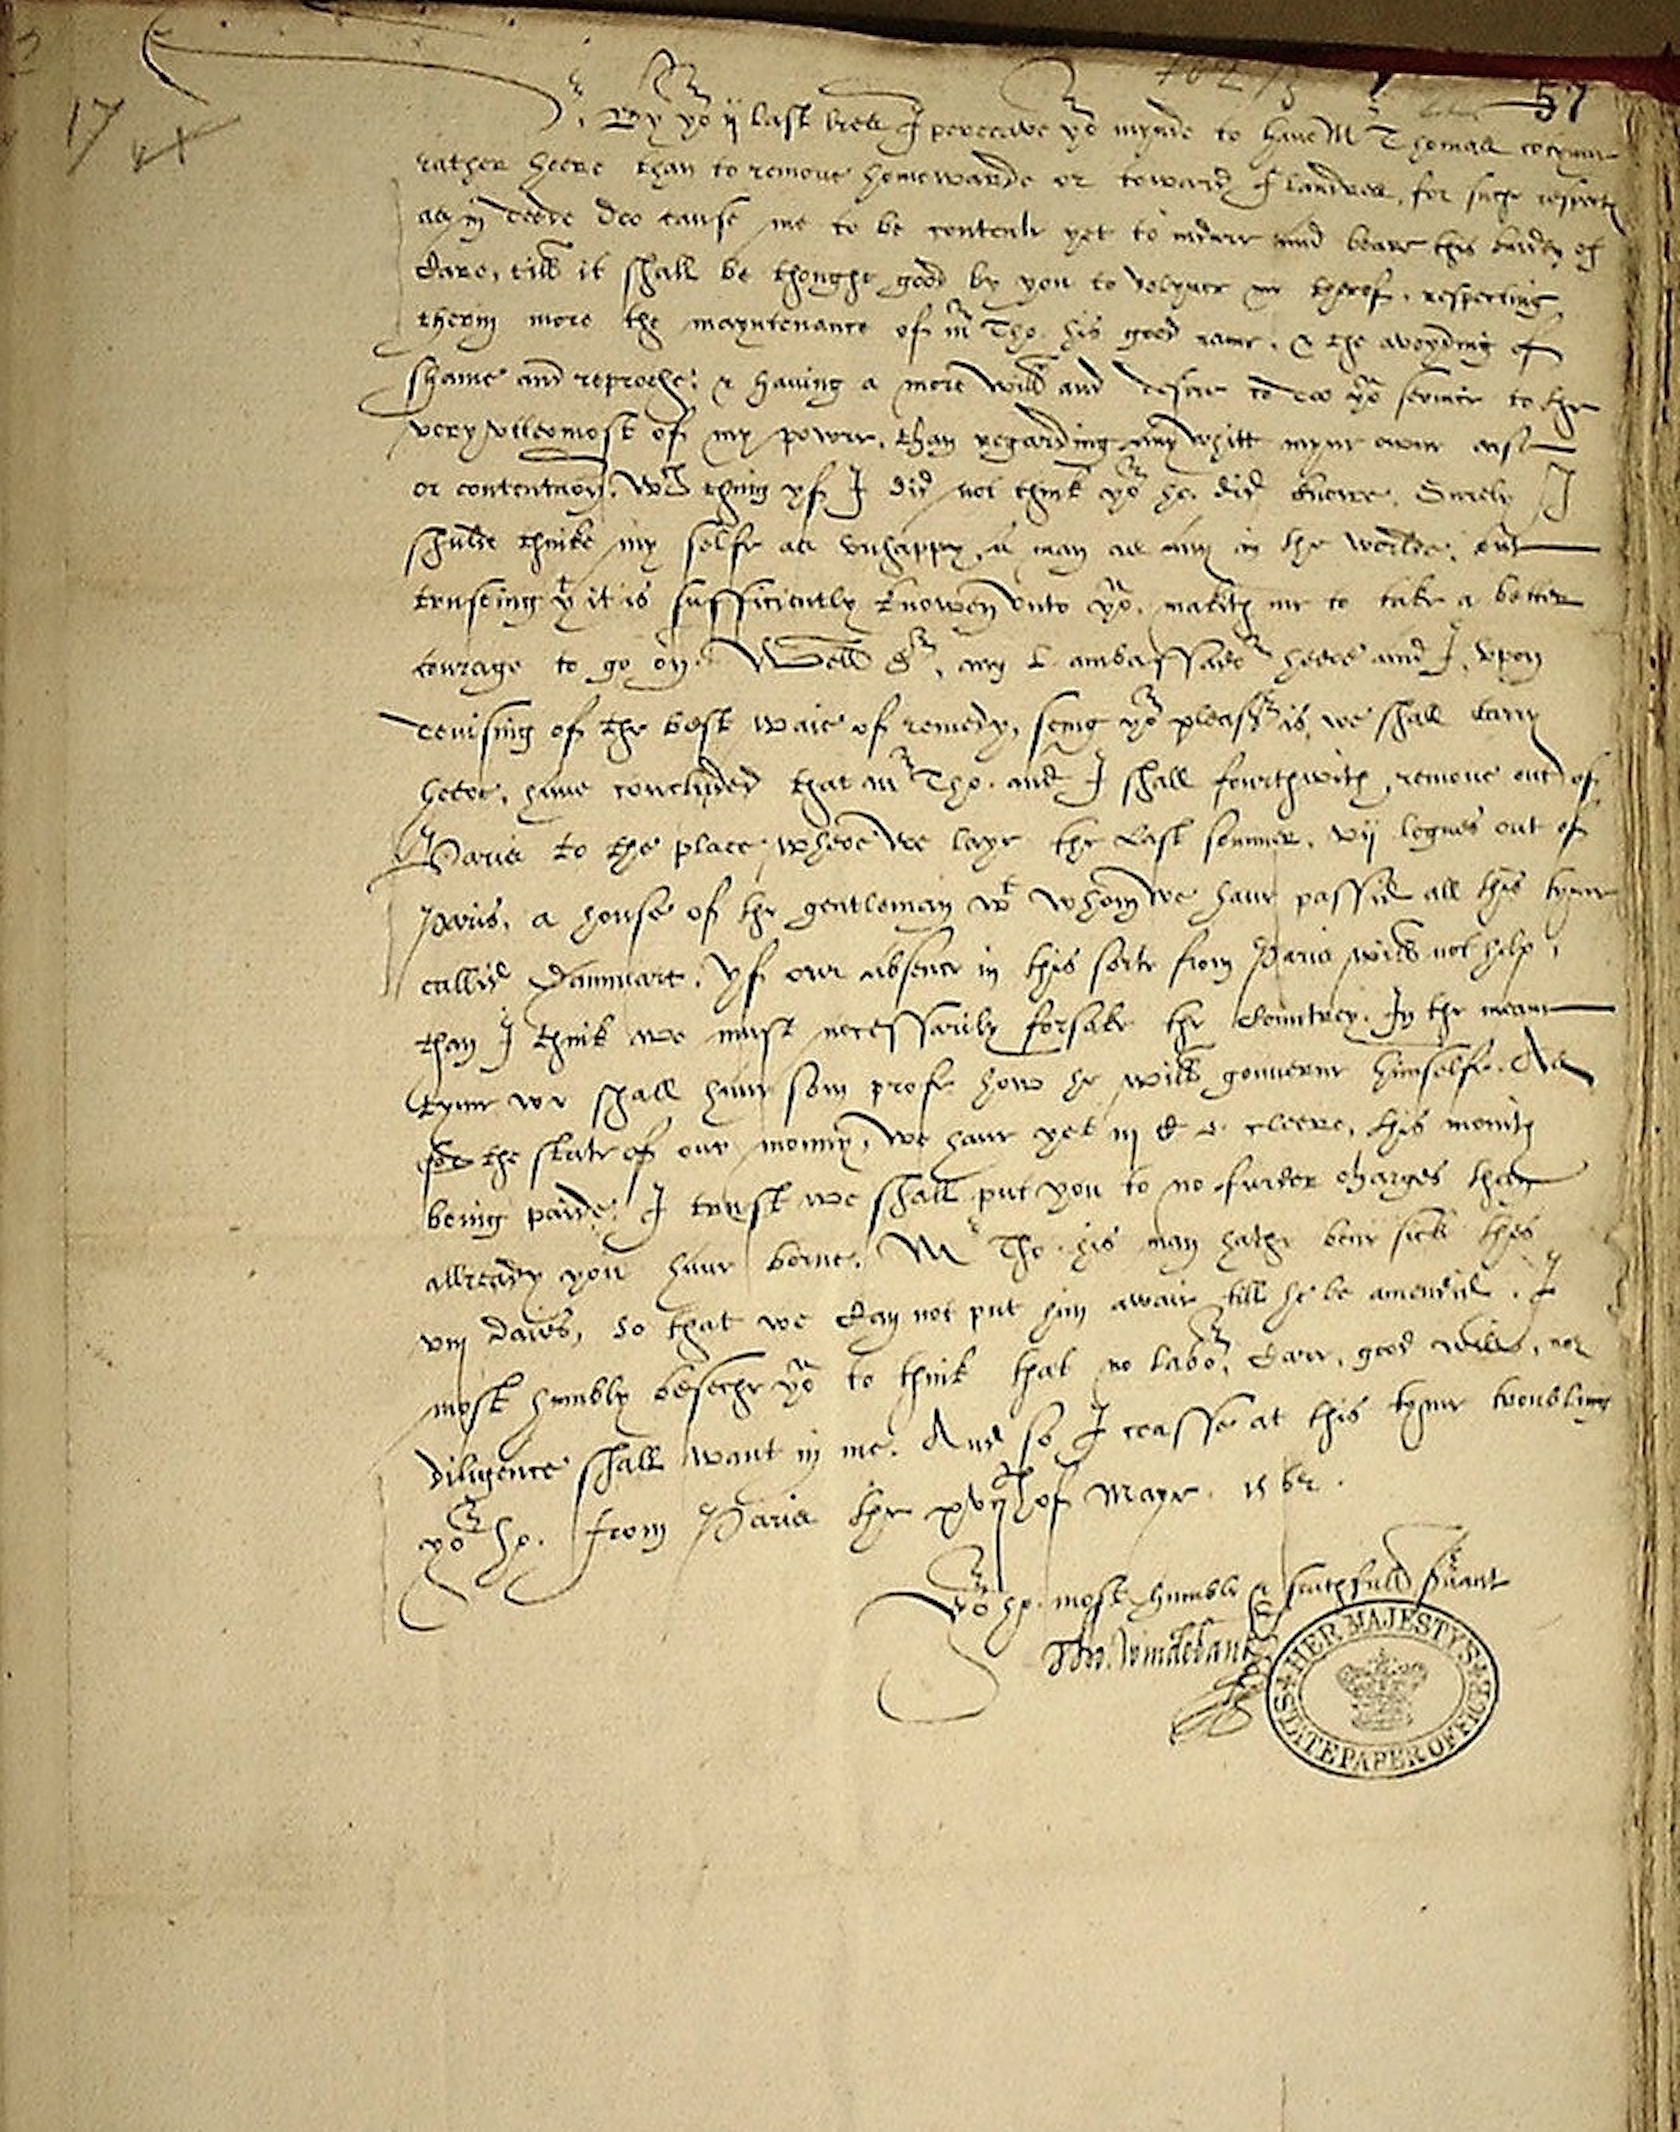 17
57
Sr. By yor ij last lres I perceave yor mynde to have Mr Thomas contynue
rather heere than to remove homewarde or toward Flandres, for such respects
as in deede doo cause me to be contente yet to indure and beare this burden of
Care, till it shall be thought good by you to relyeve me therof, respecting
therin more the mayntenance of mr Tho. his good name, & the avoyding of
shame and reproche: & having a more will and desire to doo yor service to the
very vttermost of my power, than regarding any whitt myne owne ease
or contentacion. Wch thing yf I did not think yor ho. did knowe, Surely I
shulde thinke my selfe as vnhappy a man as any in the worlde, but
trusting yt it is sufficiently knowen vnto yor, makith me to take a better
courage to go on. Well Sr, my L. ambassador heere and I, vpon
devising of the best waie of remedy, seing yor pleasr is, we shall tarry
heere, have concluded that mr Tho. and I shall fourthwith remove out of
Paris to the place where we laye the last sommer, vij legues out of
Paris, a house of the gentleman wt whom we have passid all this tyme
callid Dammart. Yf our absence in this sorte from Paris will not help,
than I think we must necessarily forsake the Countrey. In the meane
tyme we shall have som profe how he will gouverne himselfe. As
for the state of our monny, we have yet iij C cleere, this month
being paide. I trust we shall put you to no furder charges than
allready you have borne. Mr Tho. his man hathe bene sick thes
viij daies, so that we can not put him awaie till he be amendid. I
most humbly beseche yor to think that no labor, Care, good will, nor
diligence shall want in me. And so I ceasse at this tyme troubling
yor ho. From Paris the xvijth of Maye. 1562.
Yor ho. most humble & faithfull srvant
Tho. Windebank
HER MAJESTY'S STATE PAPER OFFICE